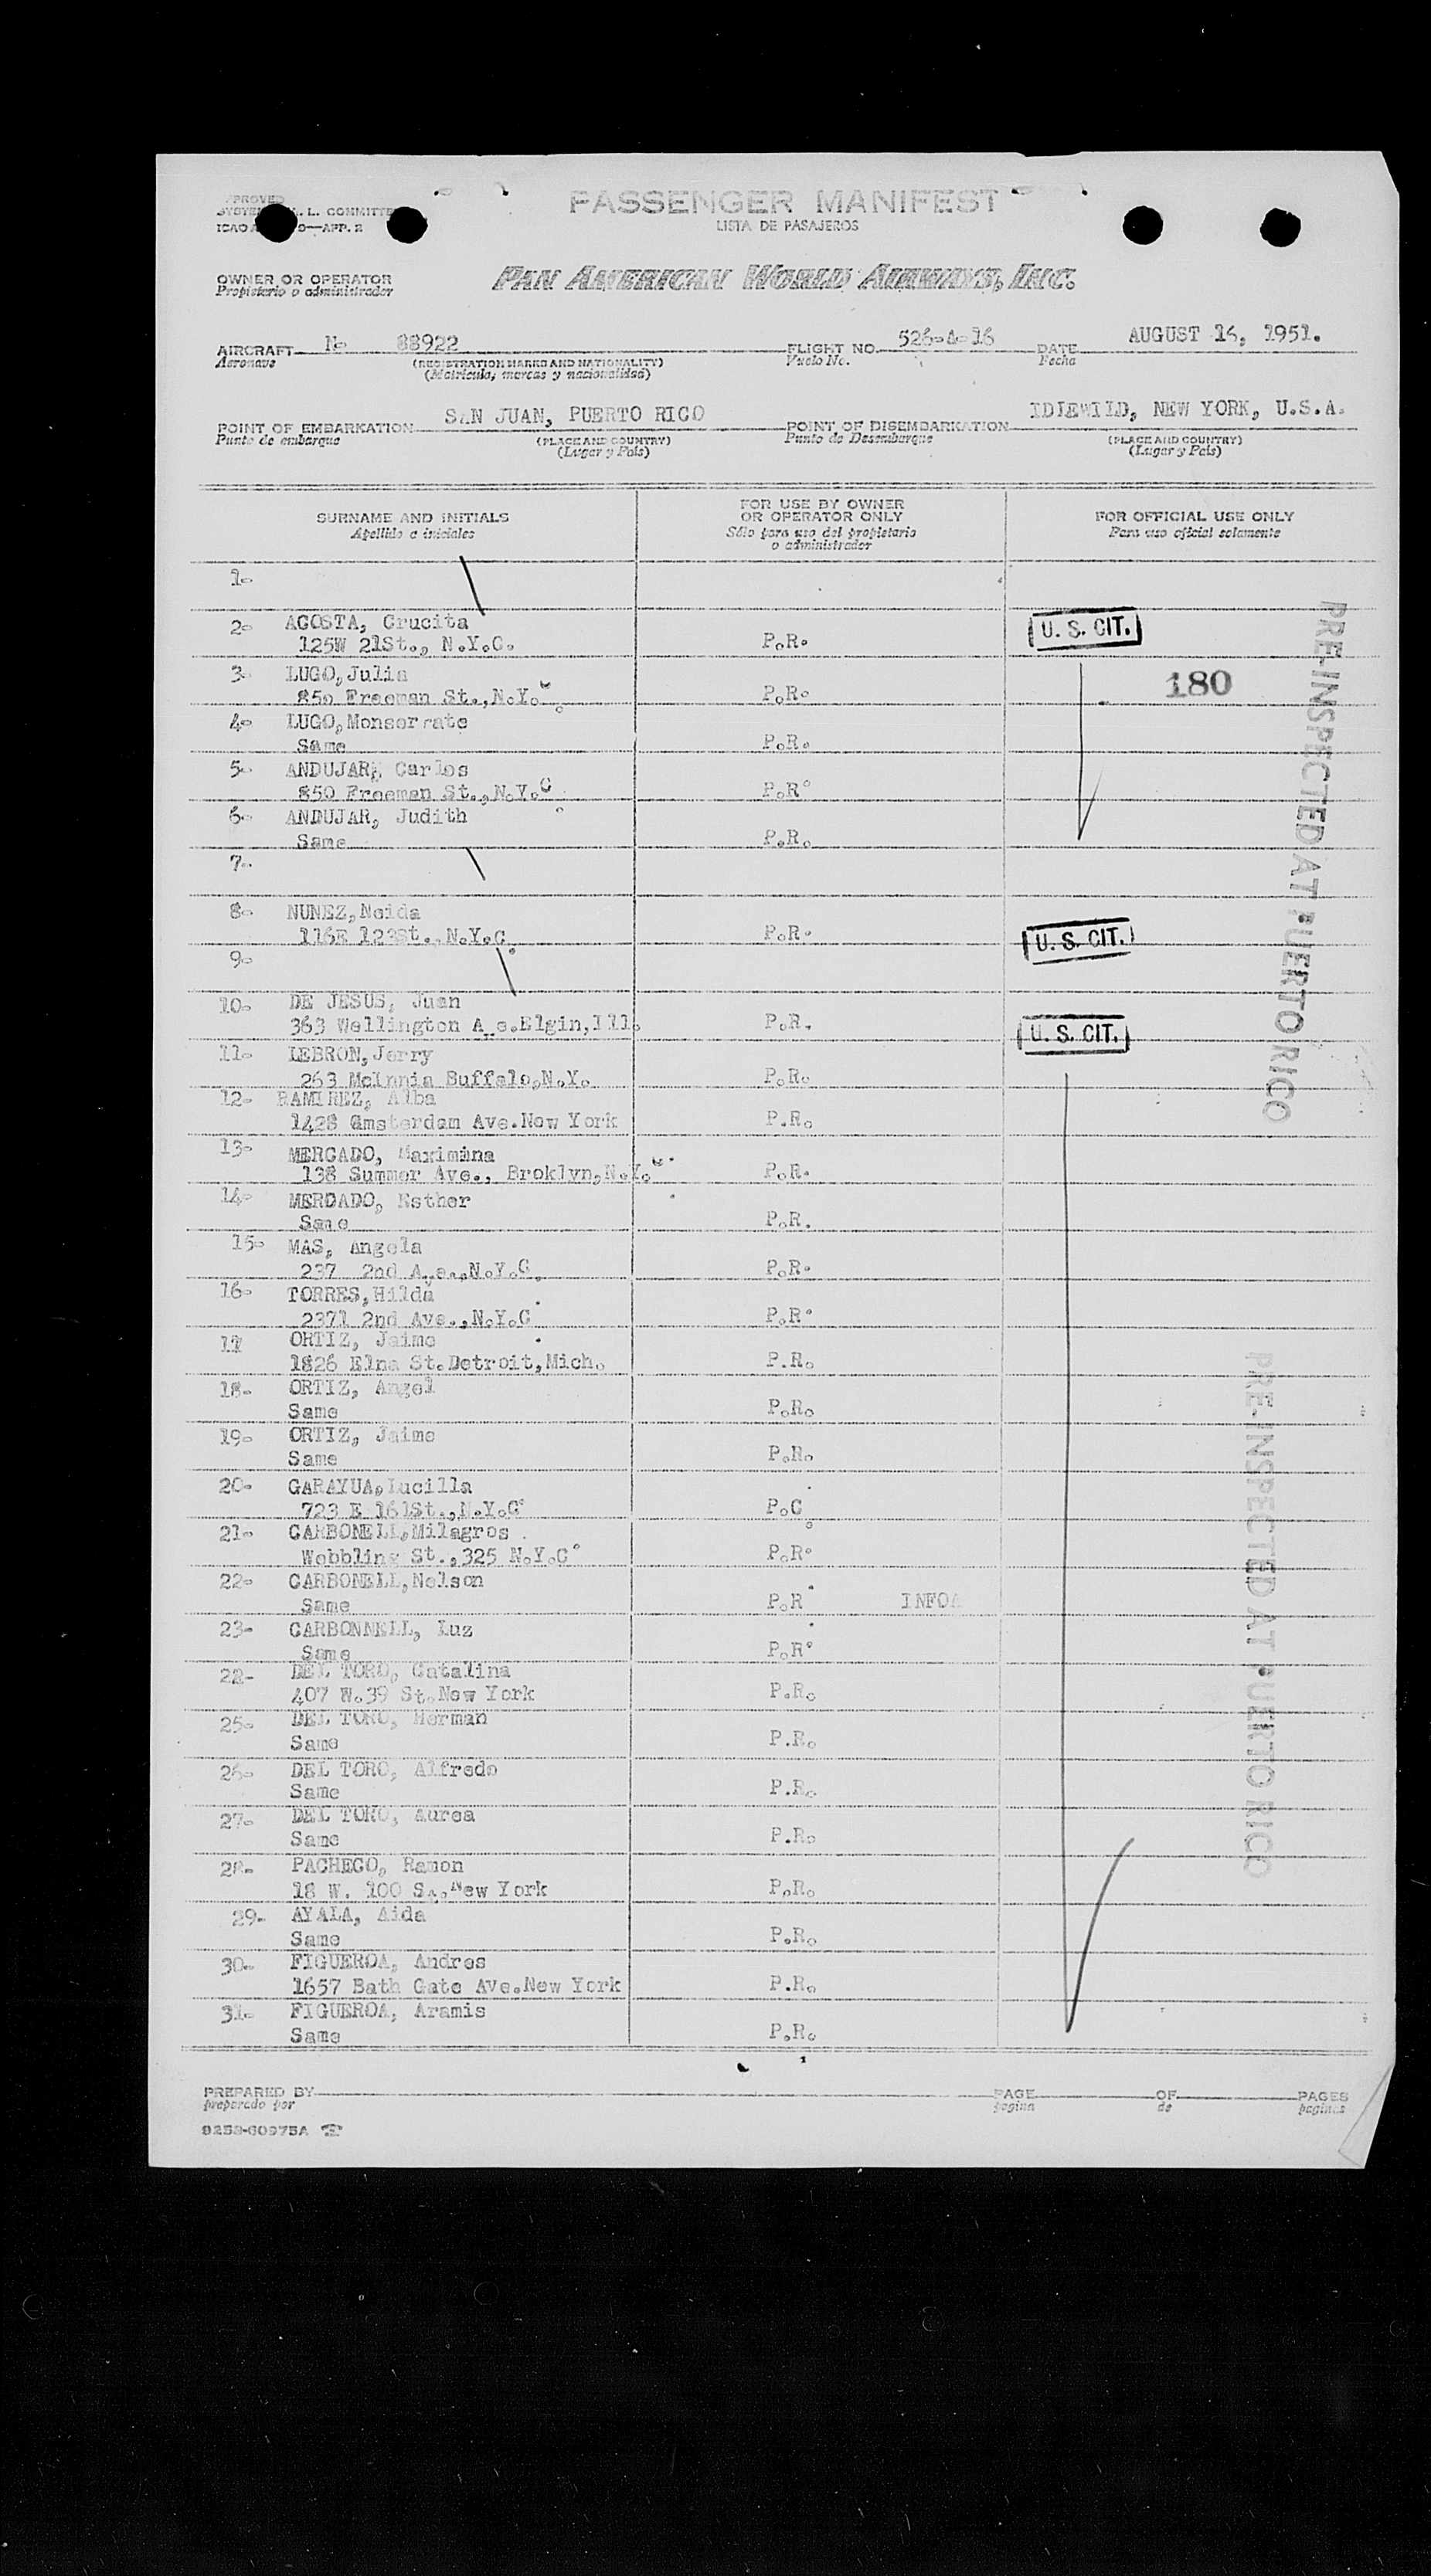 PASSENGER MANIFEST
LISTA DE PASAJEROS
OWNER OR OPERATOR
Propietario o administrador
PAN AMERICAN WORLD AIRWAYS, INC.
AIRCRAFT N- 88922 FLIGHT NO. 526-A-16 DATE AUGUST 16, 1951.
Aeronave (REGISTRATION MARKS AND NATIONALITY) Vuelo No. Fecha
(Matricula, marcas y nacionalidad)
POINT OF EMBARKATION SAN JUAN, PUERTO RICO POINT OF DISEMBARKATION IDLEWILD, NEW YORK, U.S.A.
Punto de embarque (PLACE AND COUNTRY) Punto de Desembarque (PLACE AND COUNTRY)
(Lugar y Pais) (Lugar y Pais)
SURNAME AND INITIALS FOR USE BY OWNER OR OPERATOR ONLY FOR OFFICIAL USE ONLY
Apellido e iniciales Sólo para uso del propietario o administrador Para uso oficial solamente
1-
2- AGOSTA, Crucita
125W 21St., N.Y.C. P.R. U. S. CIT.
3- LUGO,Julia 180
850 Freeman St.,N.Y.C. P.R.
4- LUGO,Monserrate
Same P.R.
5- ANDUJAR, Carlos
850 Freeman St.,N.Y.C. P.R.
6- ANDUJAR, Judith
Same P.R.
7-
8- NUNEZ,Neida
116E 123St., N.Y.C. P.R. U. S. CIT.
9-
10- DE JESUS, Juan
363 Wellington A e.Elgin,Ill. P.R. U. S. CIT.
11- LEBRON,Jerry
263 Buffalo,N.Y. P.R.
12- RAMIREZ, Alba
1428 Amsterdam Ave.New York P.R.
13- MERCADO, Maximina
138 Summer Ave., Broklyn,N.Y.C. P.R.
14- MERCADO, Esther
Same P.R.
15- MAS, Angela
237 2nd A e.,N.Y.C. P.R.
16- TORRES,Hilda
2371 2nd Ave.,N.Y.C. P.R.
17 ORTIZ, Jaime
1826 St.Detroit,Mich. P.R.
18- ORTIZ, Angel
Same P.R.
19- ORTIZ, Jaime
Same P.R.
20- GARAYUA,Lucilla
723 E 161St.,N.Y.C. P.C.
21- CARBONELL,Milagros
Webbling St.,325 N.Y.C. P.R.
22- CARBONELL,Nelson
Same P.R. INFO
23- CARBONNELL, Luz
Same P.R.
22- DEL TORO, Catalina
407 W.39 St.New York P.R.
25- DEL TORO, Herman
Same P.R.
26- DEL TORO, Alfredo
Same P.R.
27- DEL TORO, Aurea
Same P.R.
28- PACHECO, Ramon
18 W. 100 St.New York P.R.
29- AYALA, Aida
Same P.R.
30- FIGUEROA, Andres
1657 Bath Gate Ave.New York P.R.
31- FIGUEROA, Aramis
Same P.R.
PRE-INSPECTED AT PUERTO RICO
PRE-INSPECTED AT PUERTO RICO
PREPARED BY PAGE OF PAGES
preparado por pagina de paginas